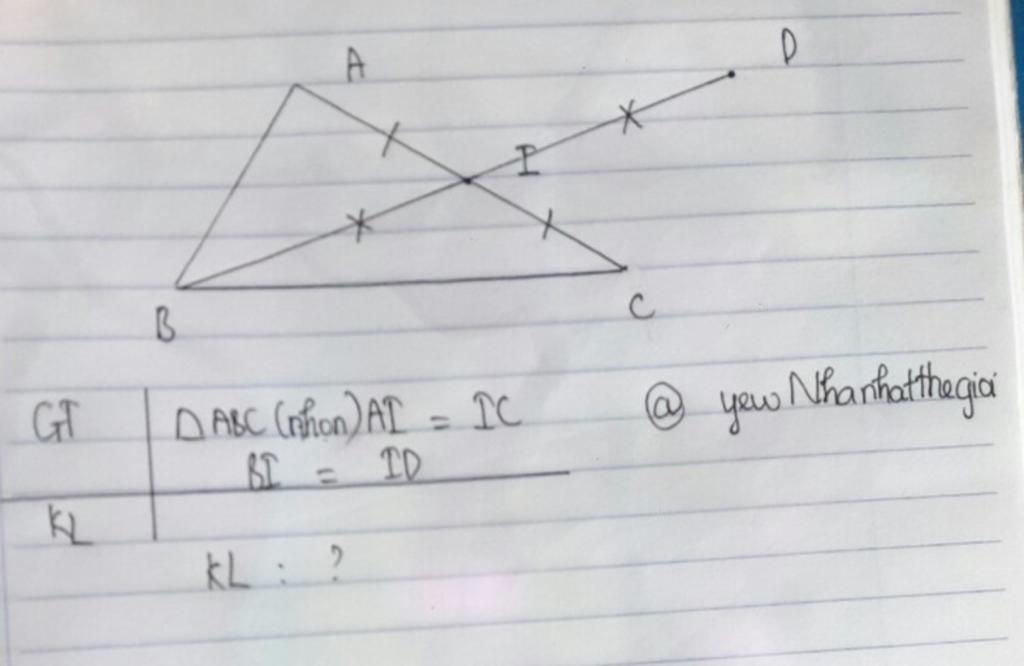 A
D
I
B
C
GT
ΔABC (nhọn) AI = IC
@ yew Nhanhatthegioi
BI = ID
KL
KL : ?